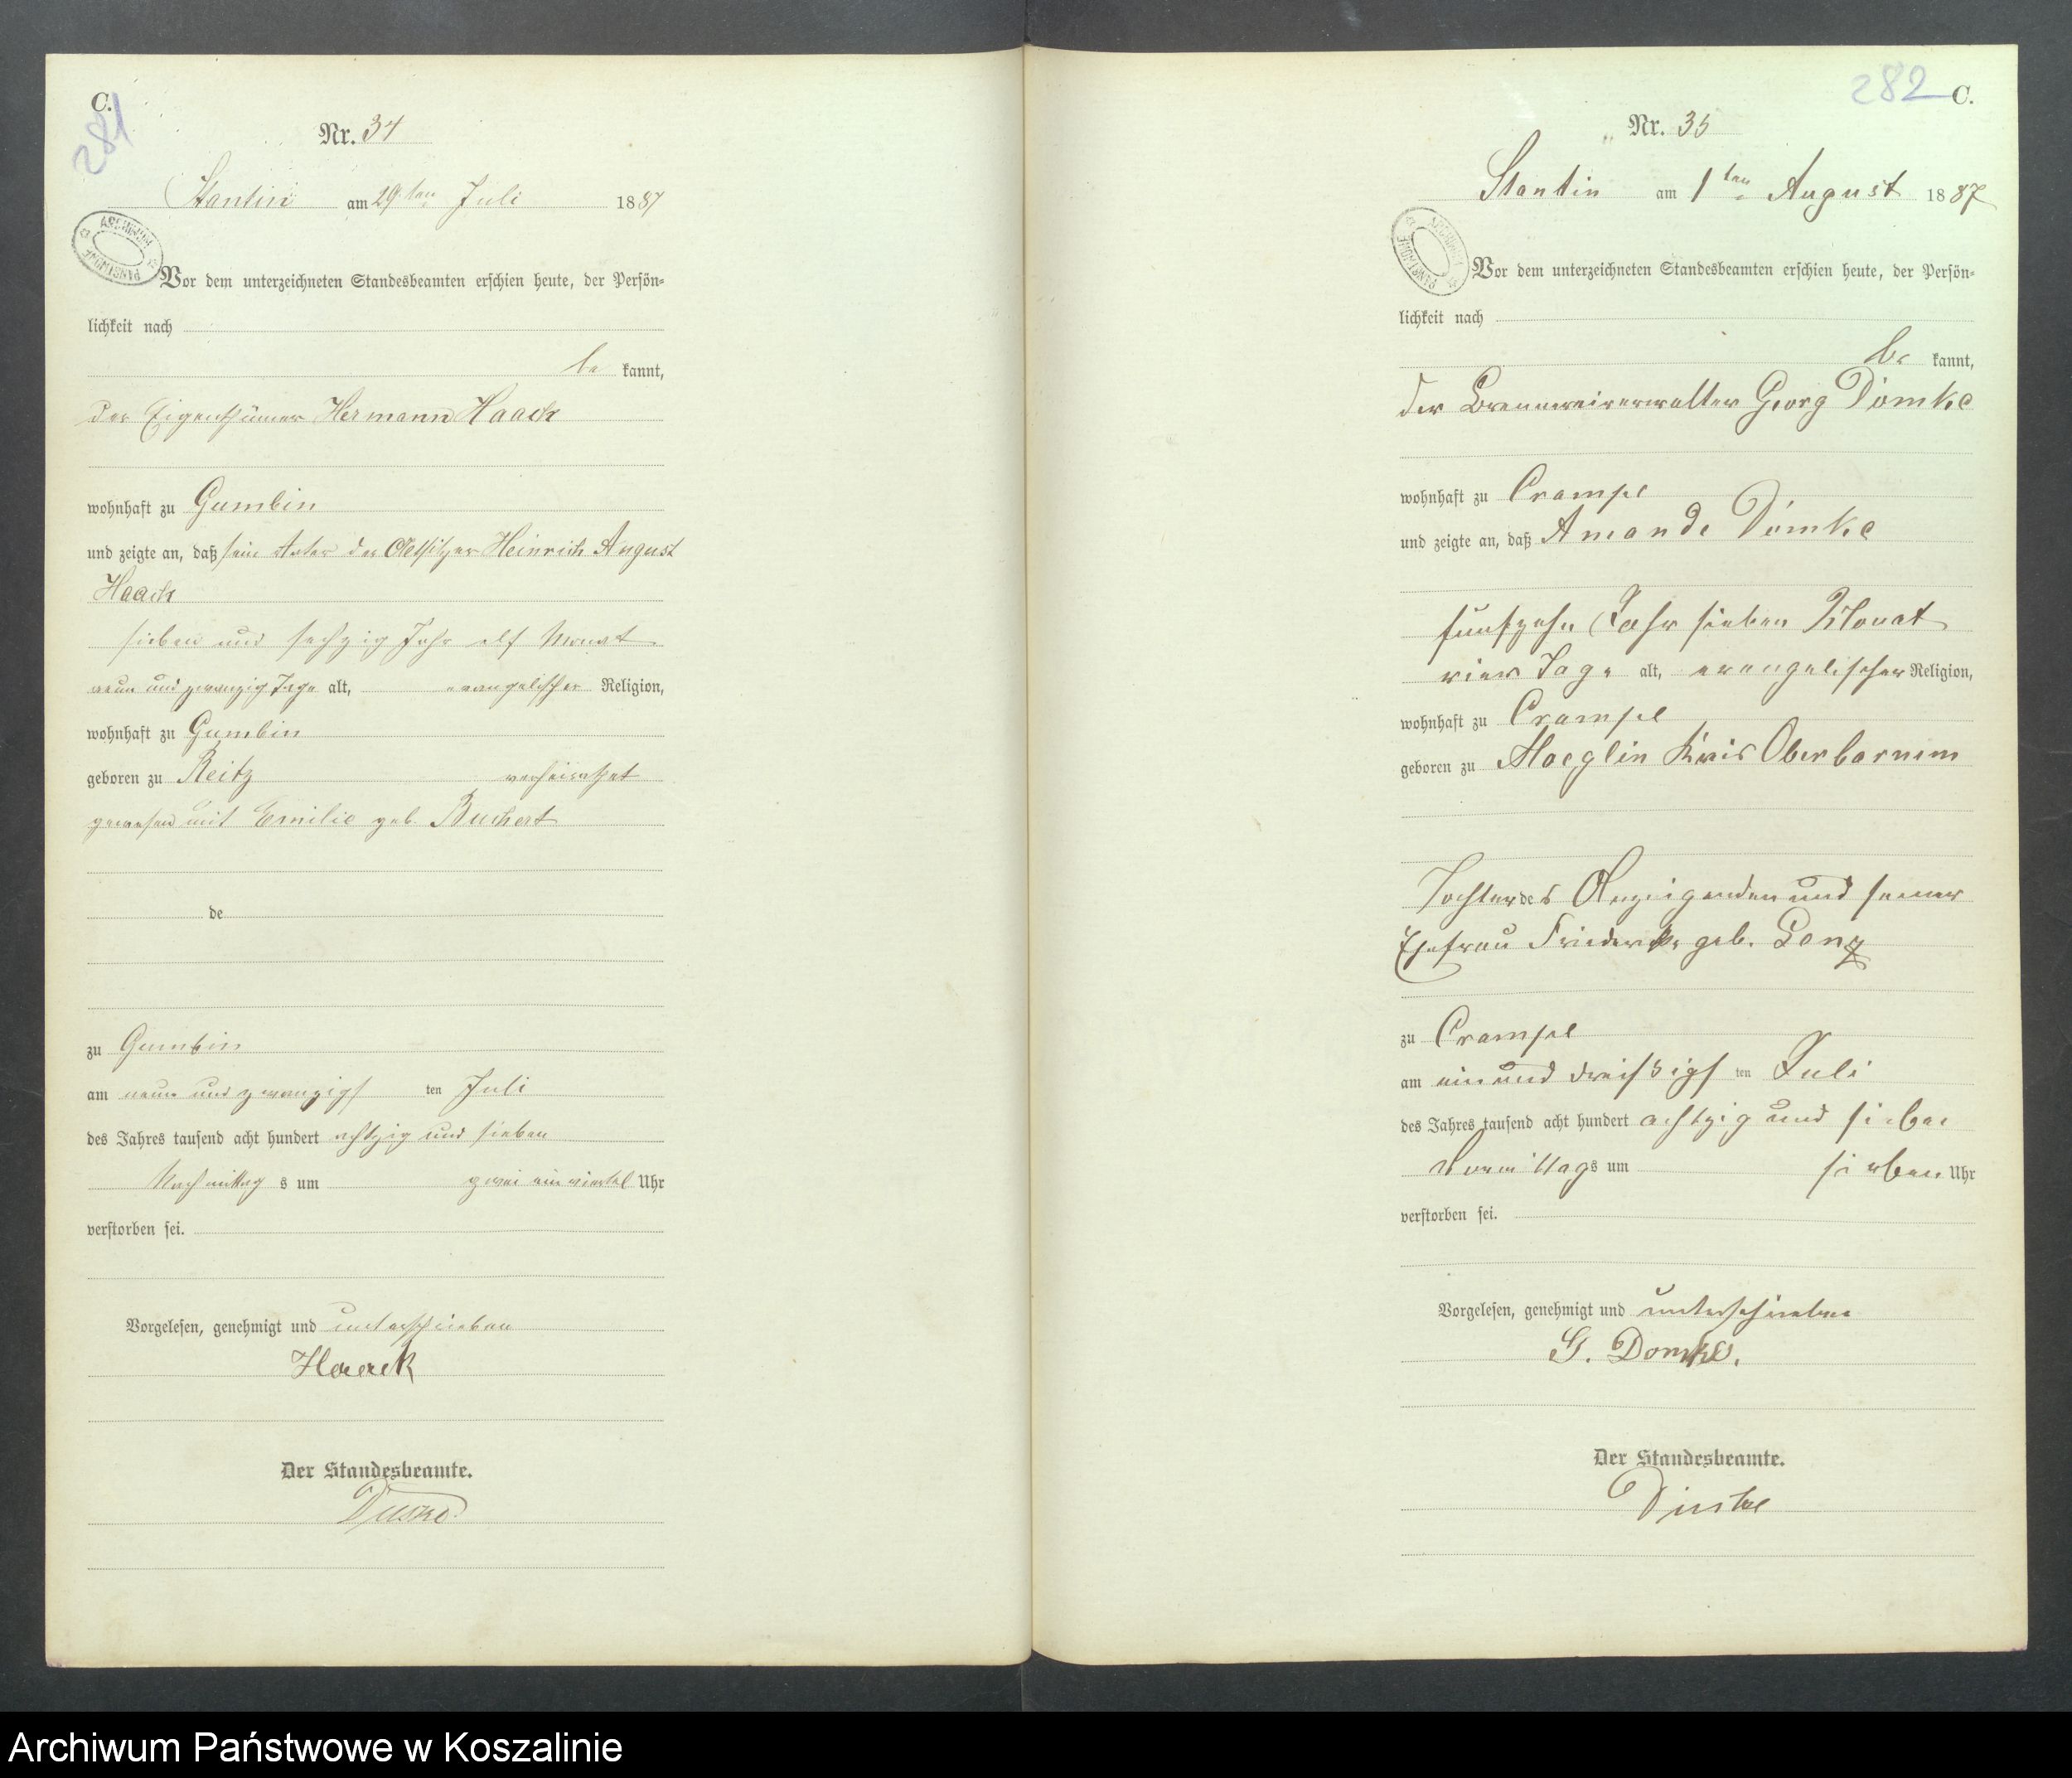 C.
281
Nr. 34
Stantin am 29ten Juli 1887
ARCHIWUM PAŃSTWOWE
Vor dem unterzeichneten Standesbeamten erschien heute, der Persön-
lichkeit nach
be kannt,
der Eigenthümer Hermann Haack
wohnhaft zu Gumbin
und zeigte an, daß sein Vater der Altsitzer Heinrich August
Haack
sieben und sechzig Jahr elf Monat
neun und zwanzig Tage alt, evangelischer Religion,
wohnhaft zu Gumbin
geboren zu Reitz verheirathet
gewesen mit Emilie geb Buchert
de
zu Gumbin
am neun und zwanzigs ten Juli
des Jahres tausend acht hundert achtzig und sieben
Nachmittag s um zwei ein viertel Uhr
verstorben sei.
Vorgelesen, genehmigt und unterschrieben
Haack
Der Standesbeamte.
282 C.
Nr. 35
Stantin am 1ten August 1887
ARCHIWUM PAŃSTWOWE
Vor dem unterzeichneten Standesbeamten erschien heute, der Persön-
lichkeit nach
be kannt,
der Brennereiverwalter Georg Domke
wohnhaft zu Crampe
und zeigte an, daß Amande Domke
fünfzehn Jahr sieben Monat
vier Tage alt, evangelischer Religion,
wohnhaft zu Crampe
geboren zu Hoeglin Kreis Oberbarnim
Tochter des Anzeigenden und seiner
Ehefrau Friederike geb. Lenz
zu Crampe
am ein und dreißigs ten Juli
des Jahres tausend acht hundert achtzig und sieben
Vormittags um sieben Uhr
verstorben sei.
Vorgelesen, genehmigt und unterschrieben
G. Domke.
Der Standesbeamte.
Archiwum Państwowe w Koszalinie